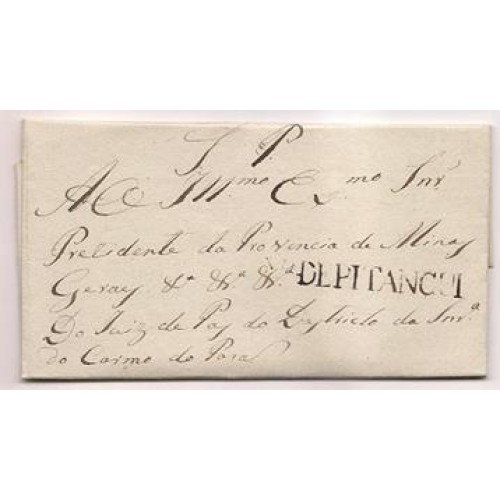 S. P.
Ao Illmo Exmo Snr
Presidente da Provincia de Minas
Geraes &a &a &a
DEPITANGUI
Do Juiz de Paz do Destricto da Snra
do Carmo do Pará